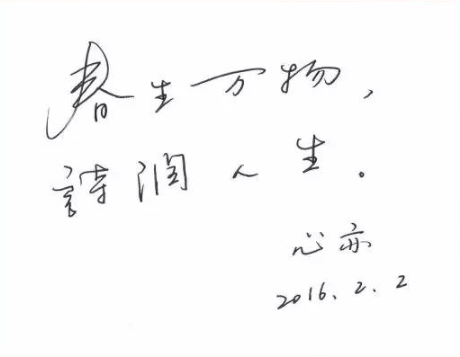 春生万物，
詩润人生。
心亦
2016.2.2